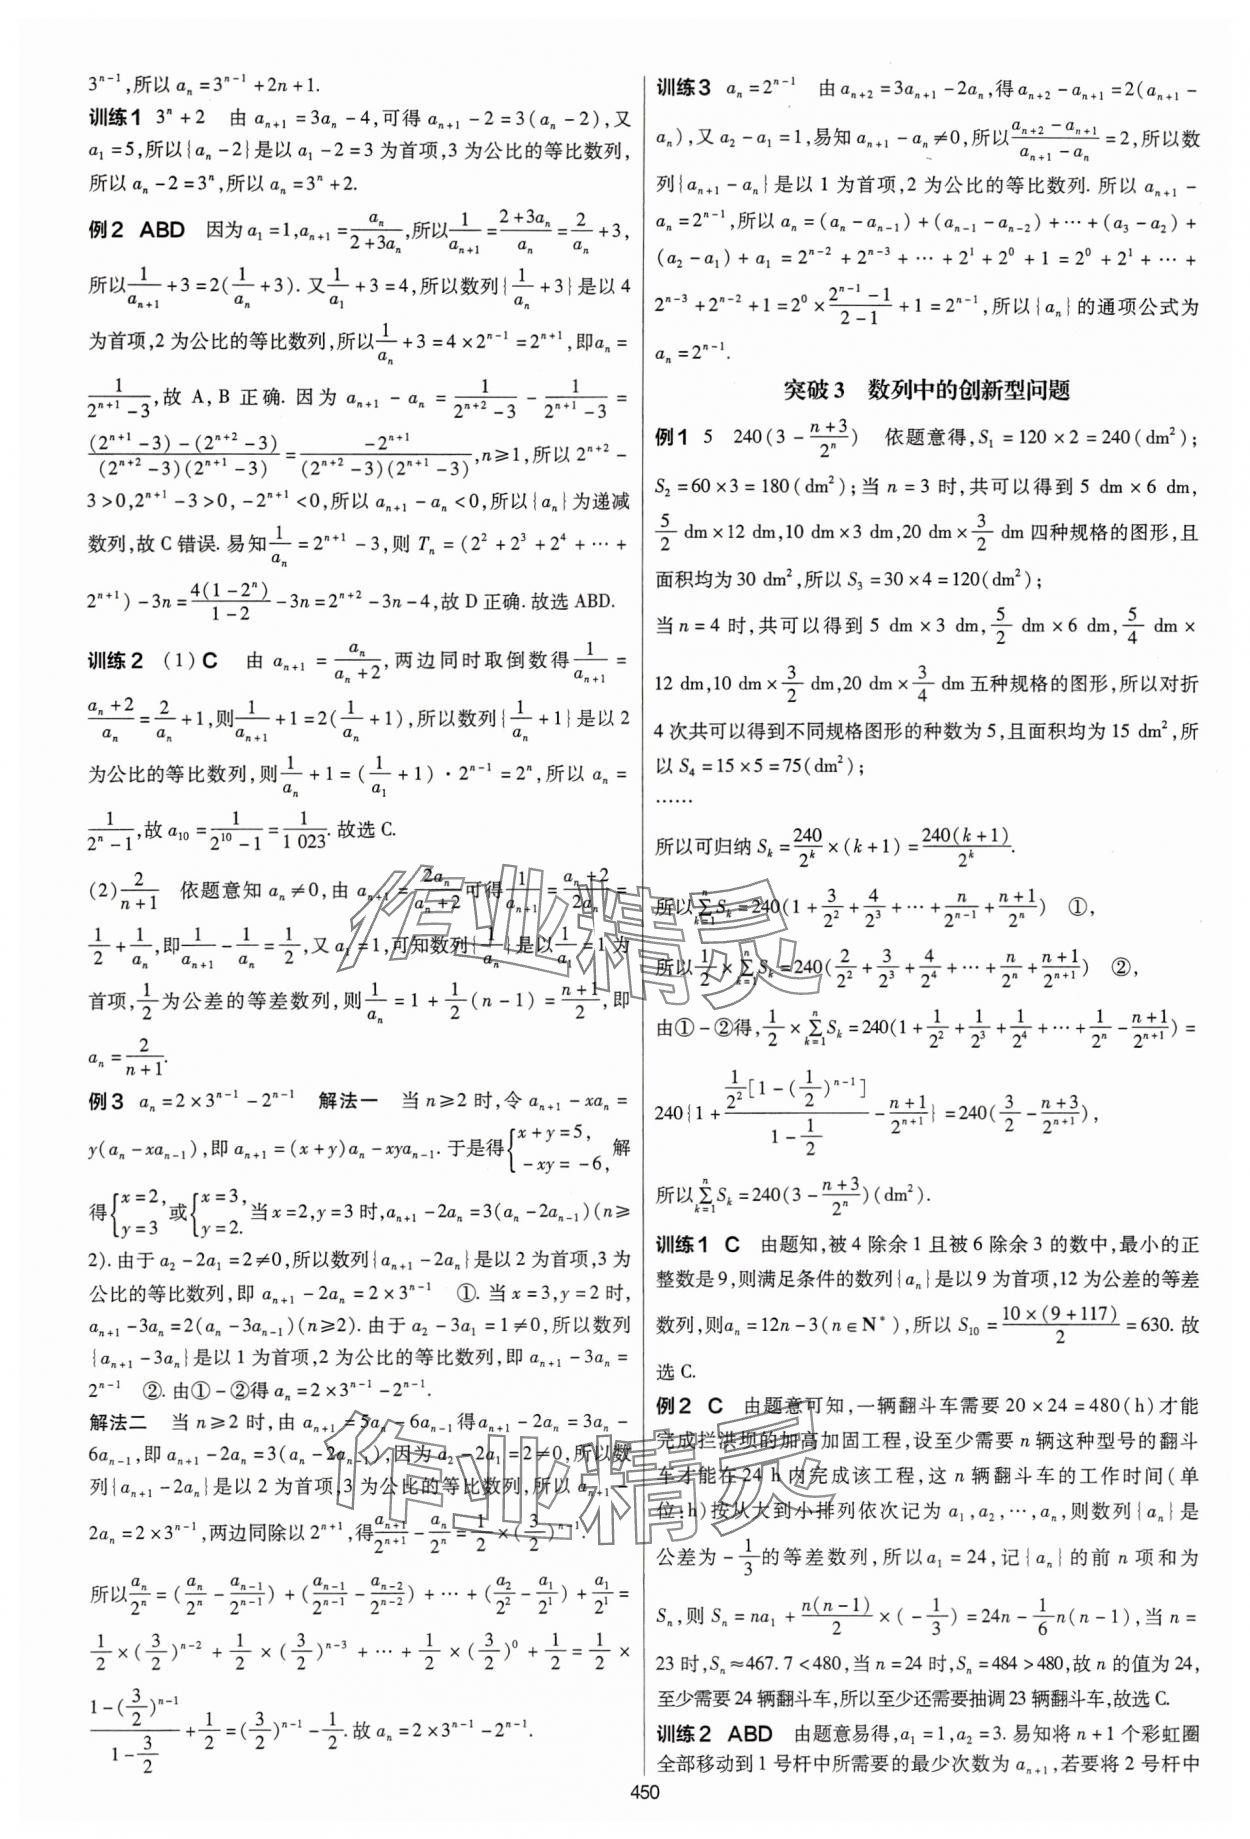 3^{n-1},所以 a_n=3^{n-1}+2n+1.
训练1 3^n+2 由 a_{n+1}=3a_n-4,可得 a_{n+1}-2=3(a_n-2),又
a_1=5,所以{a_n-2}是以 a_1-2=3 为首项,3 为公比的等比数列,
所以 a_n-2=3^n,所以 a_n=3^n+2.
例2 ABD 因为 a_1=1,a_{n+1}=\frac{a_n}{2+3a_n},所以\frac{1}{a_{n+1}}=\frac{2+3a_n}{a_n}=\frac{2}{a_n}+3,
所以\frac{1}{a_{n+1}}+3=2(\frac{1}{a_n}+3). 又\frac{1}{a_1}+3=4,所以数列{\frac{1}{a_n}+3}是以 4
为首项,2 为公比的等比数列,所以\frac{1}{a_n}+3=4×2^{n-1}=2^{n+1},即a_n=
\frac{1}{2^{n+1}-3},故 A, B 正确. 因为 a_{n+1}-a_n=\frac{1}{2^{n+2}-3}-\frac{1}{2^{n+1}-3}=
\frac{(2^{n+1}-3)-(2^{n+2}-3)}{(2^{n+2}-3)(2^{n+1}-3)}=\frac{-2^{n+1}}{(2^{n+2}-3)(2^{n+1}-3)},n≥1,所以 2^{n+2}-
3>0,2^{n+1}-3>0,-2^{n+1}<0,所以 a_{n+1}-a_n<0,所以{a_n}为递减
数列,故 C 错误. 易知\frac{1}{a_n}=2^{n+1}-3,则 T_n=(2^2+2^3+2^4+⋯+
2^{n+1})-3n=\frac{4(1-2^n)}{1-2}-3n=2^{n+2}-3n-4,故 D 正确. 故选 ABD.
训练2 (1)C 由 a_{n+1}=\frac{a_n}{a_n+2},两边同时取倒数得\frac{1}{a_{n+1}}=
\frac{a_n+2}{a_n}=\frac{2}{a_n}+1,则\frac{1}{a_{n+1}}+1=2(\frac{1}{a_n}+1),所以数列{\frac{1}{a_n}+1}是以 2
为公比的等比数列,则\frac{1}{a_n}+1=(\frac{1}{a_1}+1)·2^{n-1}=2^n,所以 a_n=
\frac{1}{2^n-1},故 a_{10}=\frac{1}{2^{10}-1}=\frac{1}{1 023}. 故选 C.
(2)\frac{2}{n+1} 依题意知 a_n≠0,由 a_{n+1}=\frac{2a_n}{a_n+2}可得\frac{1}{a_{n+1}}=\frac{a_n+2}{2a_n}=
\frac{1}{2}+\frac{1}{a_n},即\frac{1}{a_{n+1}}-\frac{1}{a_n}=\frac{1}{2},又 a_1=1,可知数列{\frac{1}{a_n}}是以\frac{1}{a_1}=1 为
首项,\frac{1}{2}为公差的等差数列,则\frac{1}{a_n}=1+\frac{1}{2}(n-1)=\frac{n+1}{2},即
a_n=\frac{2}{n+1}.
例3 a_n=2×3^{n-1}-2^{n-1} 解法一 当 n≥2 时,令 a_{n+1}-xa_n=
y(a_n-xa_{n-1}),即 a_{n+1}=(x+y)a_n-xya_{n-1}. 于是得{x+y=5, -xy=-6, 解
得{x=2, y=3 或{x=3, y=2. 当 x=2,y=3 时,a_{n+1}-2a_n=3(a_n-2a_{n-1})(n≥
2). 由于 a_2-2a_1=2≠0,所以数列{a_{n+1}-2a_n}是以 2 为首项,3 为
公比的等比数列,即 a_{n+1}-2a_n=2×3^{n-1} ①. 当 x=3,y=2 时,
a_{n+1}-3a_n=2(a_n-3a_{n-1})(n≥2). 由于 a_2-3a_1=1≠0,所以数列
{a_{n+1}-3a_n}是以 1 为首项,2 为公比的等比数列,即 a_{n+1}-3a_n=
2^{n-1} ②. 由①-②得 a_n=2×3^{n-1}-2^{n-1}.
解法二 当 n≥2 时,由 a_{n+1}=5a_n-6a_{n-1}得 a_{n+1}-2a_n=3a_n-
6a_{n-1},即 a_{n+1}-2a_n=3(a_n-2a_{n-1}),因为 a_2-2a_1=2≠0,所以数
列{a_{n+1}-2a_n}是以 2 为首项,3 为公比的等比数列,所以 a_{n+1}-
2a_n=2×3^{n-1},两边同除以 2^{n+1},得\frac{a_{n+1}}{2^{n+1}}-\frac{a_n}{2^n}=\frac{1}{2}×(\frac{3}{2})^{n-1}.
所以\frac{a_n}{2^n}=(\frac{a_n}{2^n}-\frac{a_{n-1}}{2^{n-1}})+(\frac{a_{n-1}}{2^{n-1}}-\frac{a_{n-2}}{2^{n-2}})+⋯+(\frac{a_2}{2^2}-\frac{a_1}{2^1})+\frac{a_1}{2^1}=
\frac{1}{2}×(\frac{3}{2})^{n-2}+\frac{1}{2}×(\frac{3}{2})^{n-3}+⋯+\frac{1}{2}×(\frac{3}{2})^0+\frac{1}{2}=\frac{1}{2}×
\frac{1-(\frac{3}{2})^{n-1}}{1-\frac{3}{2}}+\frac{1}{2}=(\frac{3}{2})^{n-1}-\frac{1}{2}. 故 a_n=2×3^{n-1}-2^{n-1}.
训练3 a_n=2^{n-1} 由 a_{n+2}=3a_{n+1}-2a_n,得 a_{n+2}-a_{n+1}=2(a_{n+1}-
a_n),又 a_2-a_1=1,易知 a_{n+1}-a_n≠0,所以\frac{a_{n+2}-a_{n+1}}{a_{n+1}-a_n}=2,所以数
列{a_{n+1}-a_n}是以 1 为首项,2 为公比的等比数列. 所以 a_{n+1}-
a_n=2^{n-1},所以 a_n=(a_n-a_{n-1})+(a_{n-1}-a_{n-2})+⋯+(a_3-a_2)+
(a_2-a_1)+a_1=2^{n-2}+2^{n-3}+⋯+2^1+2^0+1=2^0+2^1+⋯+
2^{n-3}+2^{n-2}+1=2^0×\frac{2^{n-1}-1}{2-1}+1=2^{n-1},所以{a_n}的通项公式为
a_n=2^{n-1}.
突破3 数列中的创新型问题
例1 5 240(3-\frac{n+3}{2^n}) 依题意得,S_1=120×2=240(dm^2);
S_2=60×3=180(dm^2);当 n=3 时,共可以得到 5 dm×6 dm,
\frac{5}{2} dm×12 dm,10 dm×3 dm,20 dm×\frac{3}{2} dm 四种规格的图形,且
面积均为 30 dm^2,所以 S_3=30×4=120(dm^2);
当 n=4 时,共可以得到 5 dm×3 dm,\frac{5}{2} dm×6 dm,\frac{5}{4} dm×
12 dm,10 dm×\frac{3}{2} dm,20 dm×\frac{3}{4} dm 五种规格的图形,所以对折
4 次共可以得到不同规格图形的种数为 5,且面积均为 15 dm^2,所
以 S_4=15×5=75(dm^2);
……
所以可归纳 S_k=\frac{240}{2^k}×(k+1)=\frac{240(k+1)}{2^k}.
所以\sum_{k=1}^{n}S_k=240(1+\frac{3}{2^2}+\frac{4}{2^3}+⋯+\frac{n}{2^{n-1}}+\frac{n+1}{2^n}) ①,
所以\frac{1}{2}×\sum_{k=1}^{n}S_k=240(\frac{2}{2^2}+\frac{3}{2^3}+\frac{4}{2^4}+⋯+\frac{n}{2^n}+\frac{n+1}{2^{n+1}}) ②,
由①-②得,\frac{1}{2}×\sum_{k=1}^{n}S_k=240(1+\frac{1}{2^2}+\frac{1}{2^3}+\frac{1}{2^4}+⋯+\frac{1}{2^n}-\frac{n+1}{2^{n+1}})=
240{1+\frac{\frac{1}{2^2}[1-(\frac{1}{2})^{n-1}]}{1-\frac{1}{2}}-\frac{n+1}{2^{n+1}}}=240(\frac{3}{2}-\frac{n+3}{2^{n+1}}),
所以\sum_{k=1}^{n}S_k=240(3-\frac{n+3}{2^n})(dm^2).
训练1 C 由题知,被 4 除余 1 且被 6 除余 3 的数中,最小的正
整数是 9,则满足条件的数列{a_n}是以 9 为首项,12 为公差的等差
数列,则a_n=12n-3(n∈N^*),所以 S_{10}=\frac{10×(9+117)}{2}=630. 故
选 C.
例2 C 由题意可知,一辆翻斗车需要 20×24=480(h)才能
完成拦洪坝的加高加固工程,设至少需要 n 辆这种型号的翻斗
车才能在 24 h 内完成该工程,这 n 辆翻斗车的工作时间(单
位:h)按从大到小排列依次记为 a_1,a_2,⋯,a_n,则数列{a_n}是
公差为-\frac{1}{3}的等差数列,所以a_1=24,记{a_n}的前 n 项和为
S_n,则 S_n=na_1+\frac{n(n-1)}{2}×(-\frac{1}{3})=24n-\frac{1}{6}n(n-1),当 n=
23 时,S_n≈467.7<480,当 n=24 时,S_n=484>480,故 n 的值为 24,
至少需要 24 辆翻斗车,所以至少还需要抽调 23 辆翻斗车,故选 C.
训练2 ABD 由题意易得,a_1=1,a_2=3. 易知将 n+1 个彩虹圈
全部移动到 1 号杆中所需要的最少次数为 a_{n+1},若要将 2 号杆中
450
作业精灵
作业精灵